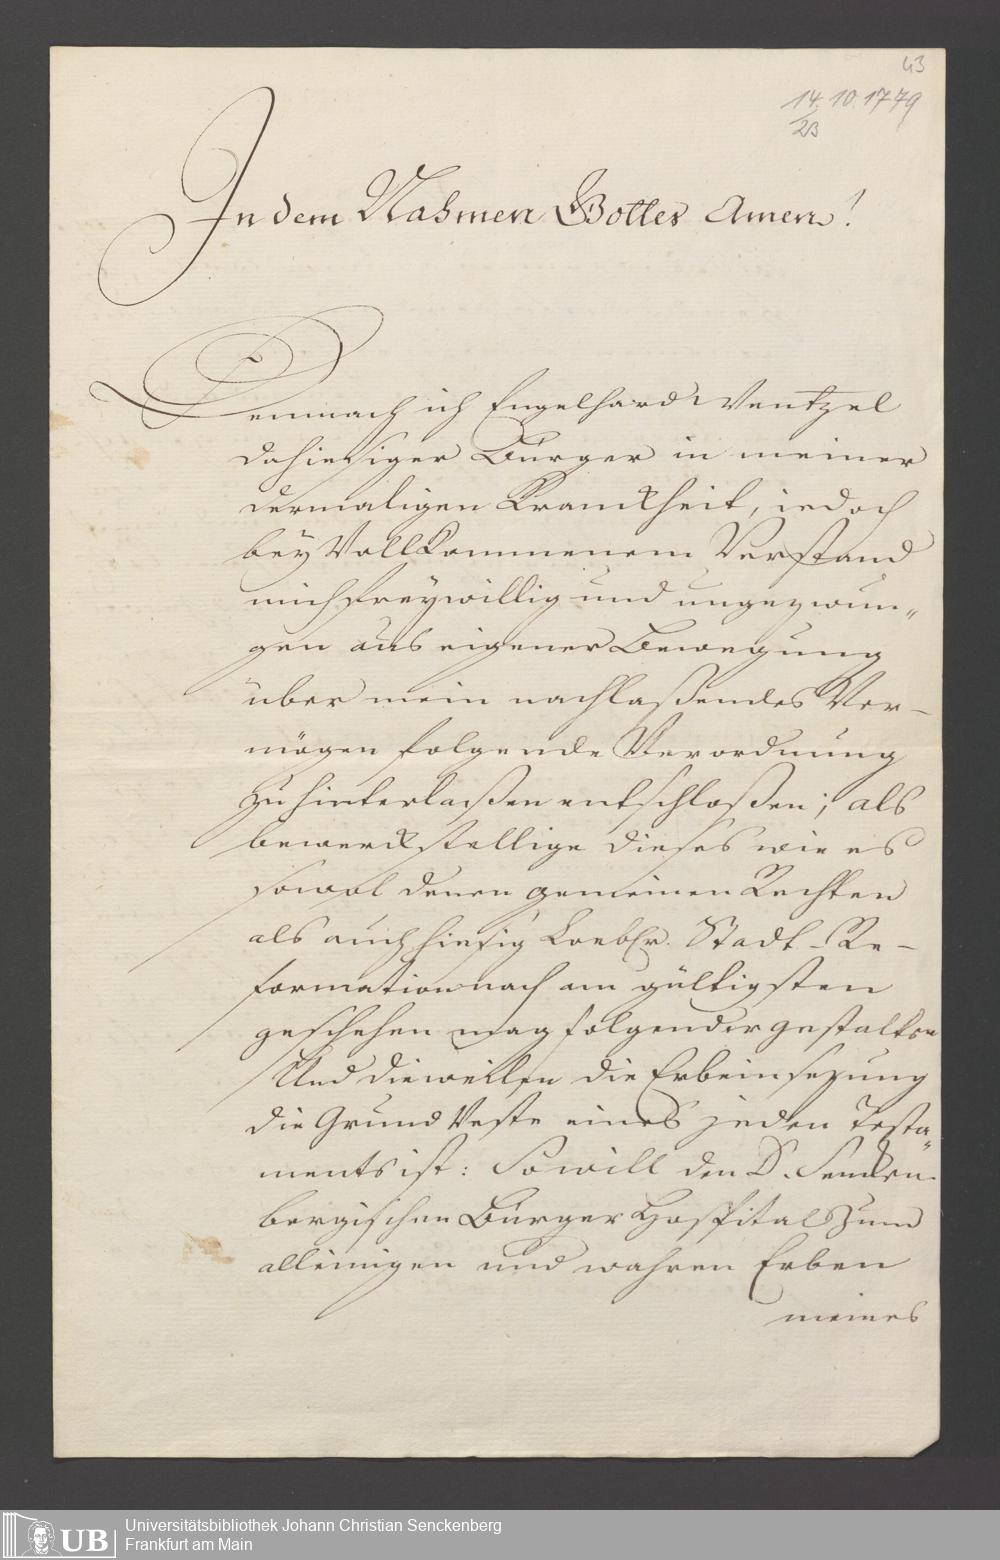 43
14.10.1779
2B
In dem Nahmen Gottes Amen!
Demnach ich Engelhard Wentzel
dahiesiger Bürger in meiner
dermaligen Kranckheit, iedoch
bey Vollkommenem Verstand
mich freywillig und ungezwun„
gen aus eigener Bewegung
über mein nachlaßendes Ver-
mögen folgende Verordnung
zu hinterlaßen entschloßen; als
bewerckstellige dieses wie es
sowol denen gemeinen Rechten
als auch hiesig Loebl. Stadt-Re-
formation nach am gültigsten
geschehen mag folgender gestalten
Und dieweilen die Erbeinsezung
die Grund Veste eines jeden Testa„
ments ist: So will den D. Sencken-
bergischen Bürger Hospital zum
alleinigen und wahren Erben
meines
UB
Universitätsbibliothek Johann Christian Senckenberg
Frankfurt am Main